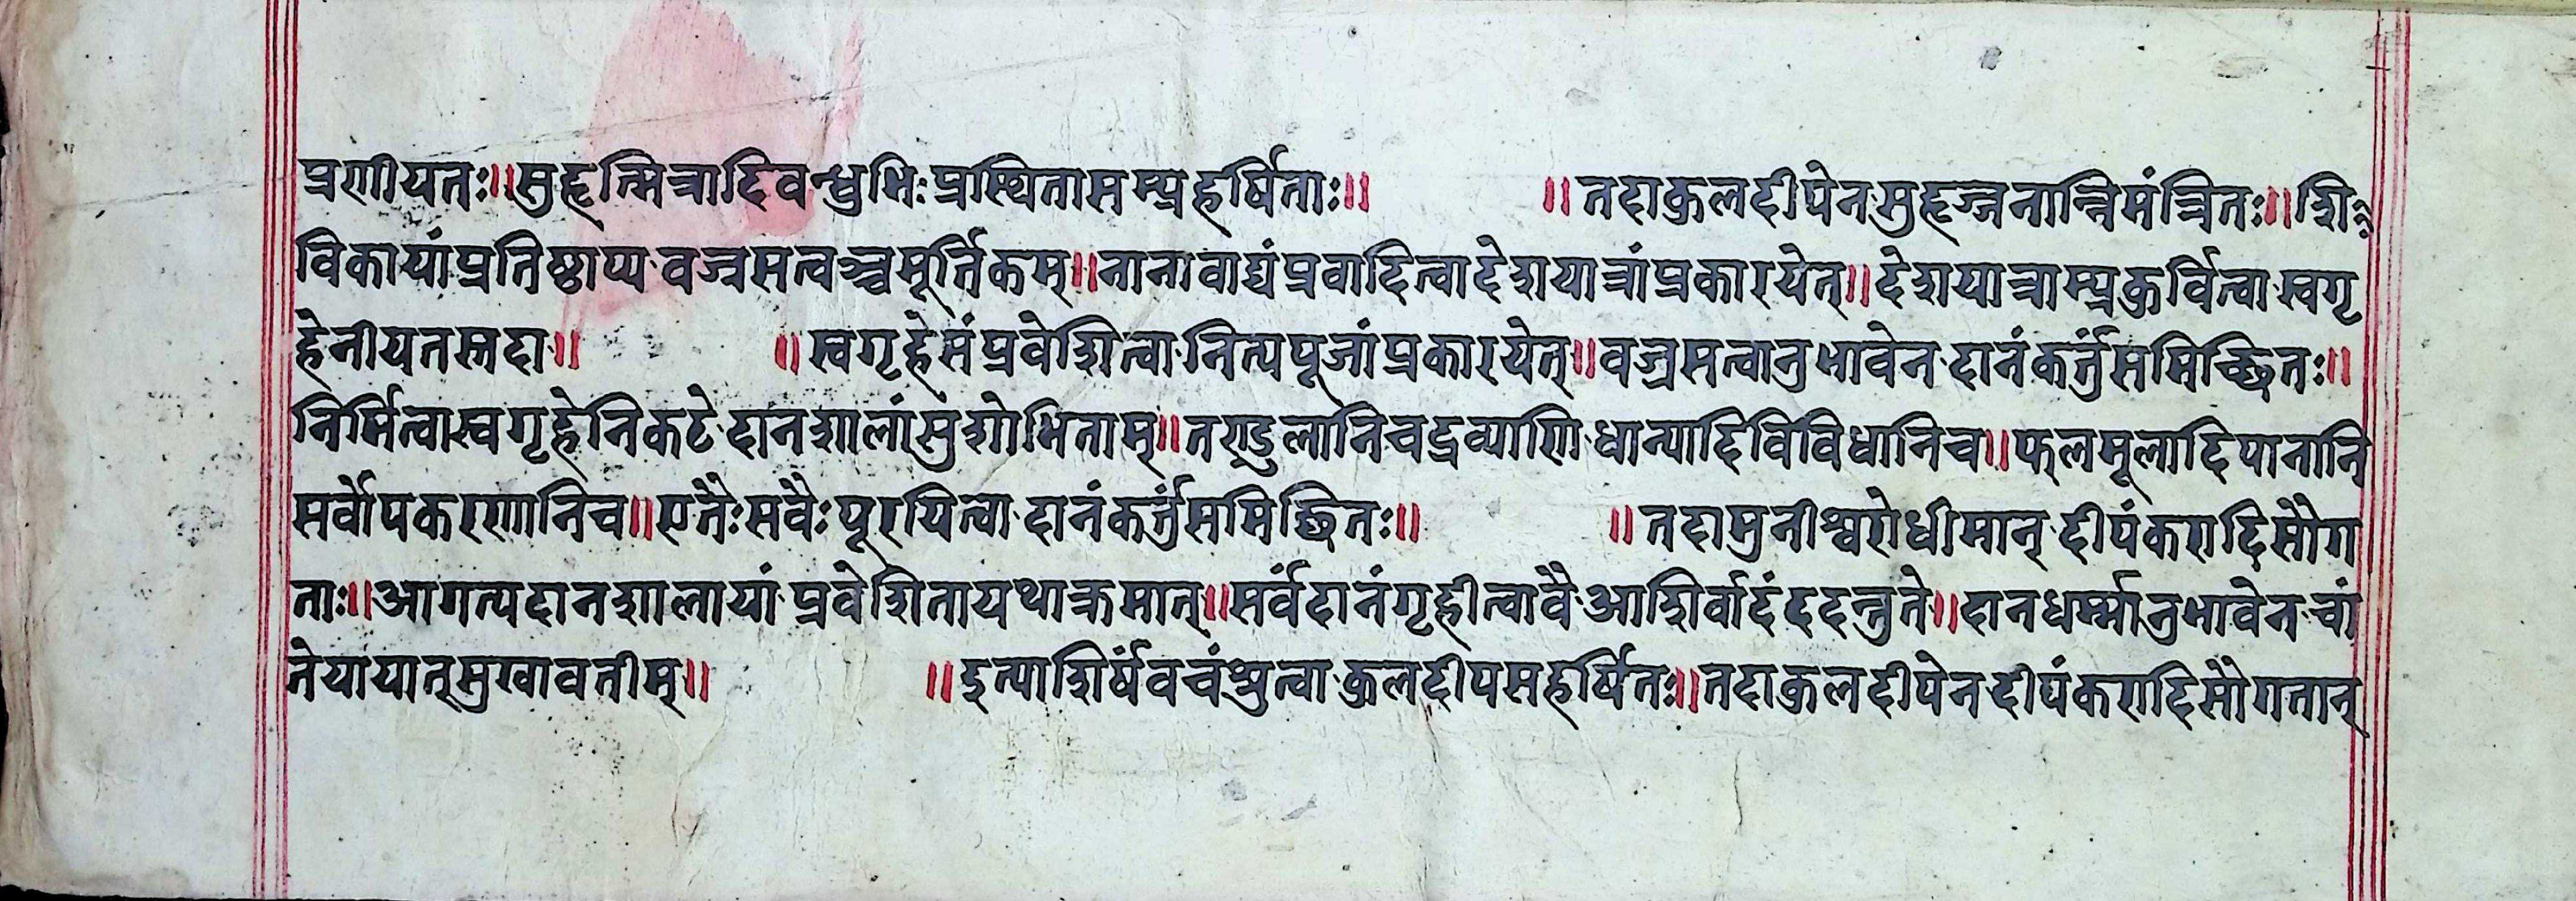 प्रणीयतः॥सुहृन्मित्रादिवन्धुभिःप्रस्थितासम्प्रहर्षिताः॥ ॥तदाकुलदीपेनसुहृज्जनान्निमंत्रितः॥शि
विकायांप्रतिष्ठाप्यवज्रसत्वञ्चमूर्त्तिकम्॥नानावाद्यंप्रवादित्वादेशयात्रांप्रकारयेत्॥देशयात्राम्प्रकुर्वित्वास्वगृ
हेनीयतस्तदा॥ ॥स्वगृहेसंप्रवेशित्वानित्यपूजांप्रकारयेत्॥वज्रसत्वानुभावेनदानंकर्त्तुंसमिच्छितः॥
निर्मित्वास्वगृहेनिकटेदानशालांसुशोभिताम्॥तण्डुलानिचद्रव्याणिधान्यादिविविधानिच॥फलमूलादिपानानि
सर्वोपकरणानिच॥एतैःसर्वैःपूरयित्वादानंकर्त्तुंसमिच्छितः॥ ॥तदामुनीश्वरोधीमान्दीपंकरादिसौग
ताः॥आगत्यदानशालायांप्रवेशितायथाक्रमात्॥सर्वंदानंगृहीत्वावैआशिर्वादंददन्तुते॥दानधर्म्मानुभावेनचां
तेयायात्सुखावतीम्॥ ॥इत्याशिर्षंवचंश्रुत्वाकुलदीपसहर्षितः॥तदाकुलदीपेनदीपंकरादिसौगतान्